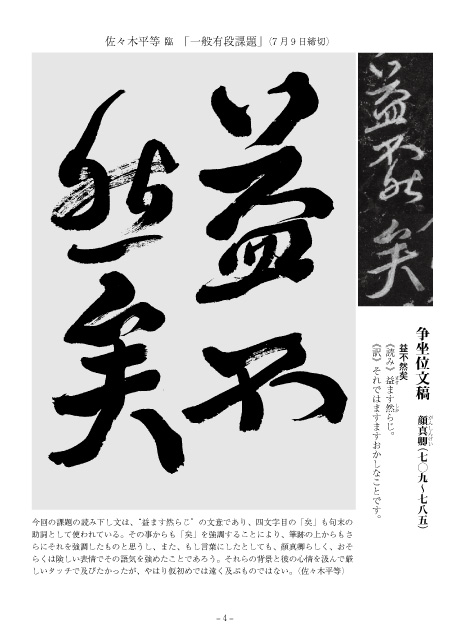 佐々木平等 臨 「一般有段課題」(7月9日締切)
益不
然矣
益不然矣
争坐位文稿 顔真卿(七〇九〜七八五)
がんしんけい
益不然矣
《読み》益ます然らじ。
ます しか
《訳》それではますますおかしなことです。
今回の課題の読み下し文は、“益ます然らじ”の文意であり、四文字目の「矣」も句末の
助詞として使われている。その事からも「矣」を強調することにより、筆跡の上からもさ
らにそれを強調したものと思うし、また、もし言葉にしたとしても、顔真卿らしく、おそ
らくは険しい表情でその語気を強めたことであろう。それらの背景と彼の心情を汲んで厳
しいタッチで及びたかったが、やはり仮初めでは遠く及ぶものではない。(佐々木平等)
– 4 –